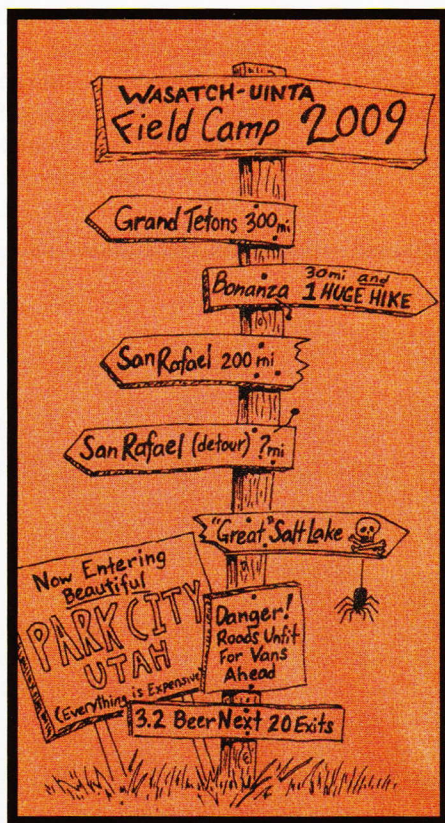 WASATCH-UINTA
Field Camp 2009
Grand Tetons 300mi
Bonanza 30mi and
1 HUGE HIKE
San Rafael 200 mi
San Rafael (detour) ?mi
"Great" Salt Lake
Now Entering
Beautiful
PARK CITY
UTAH
(Everything is Expensive)
Danger!
Roads Unfit
For Vans
Ahead
3.2 Beer Next 20 Exits